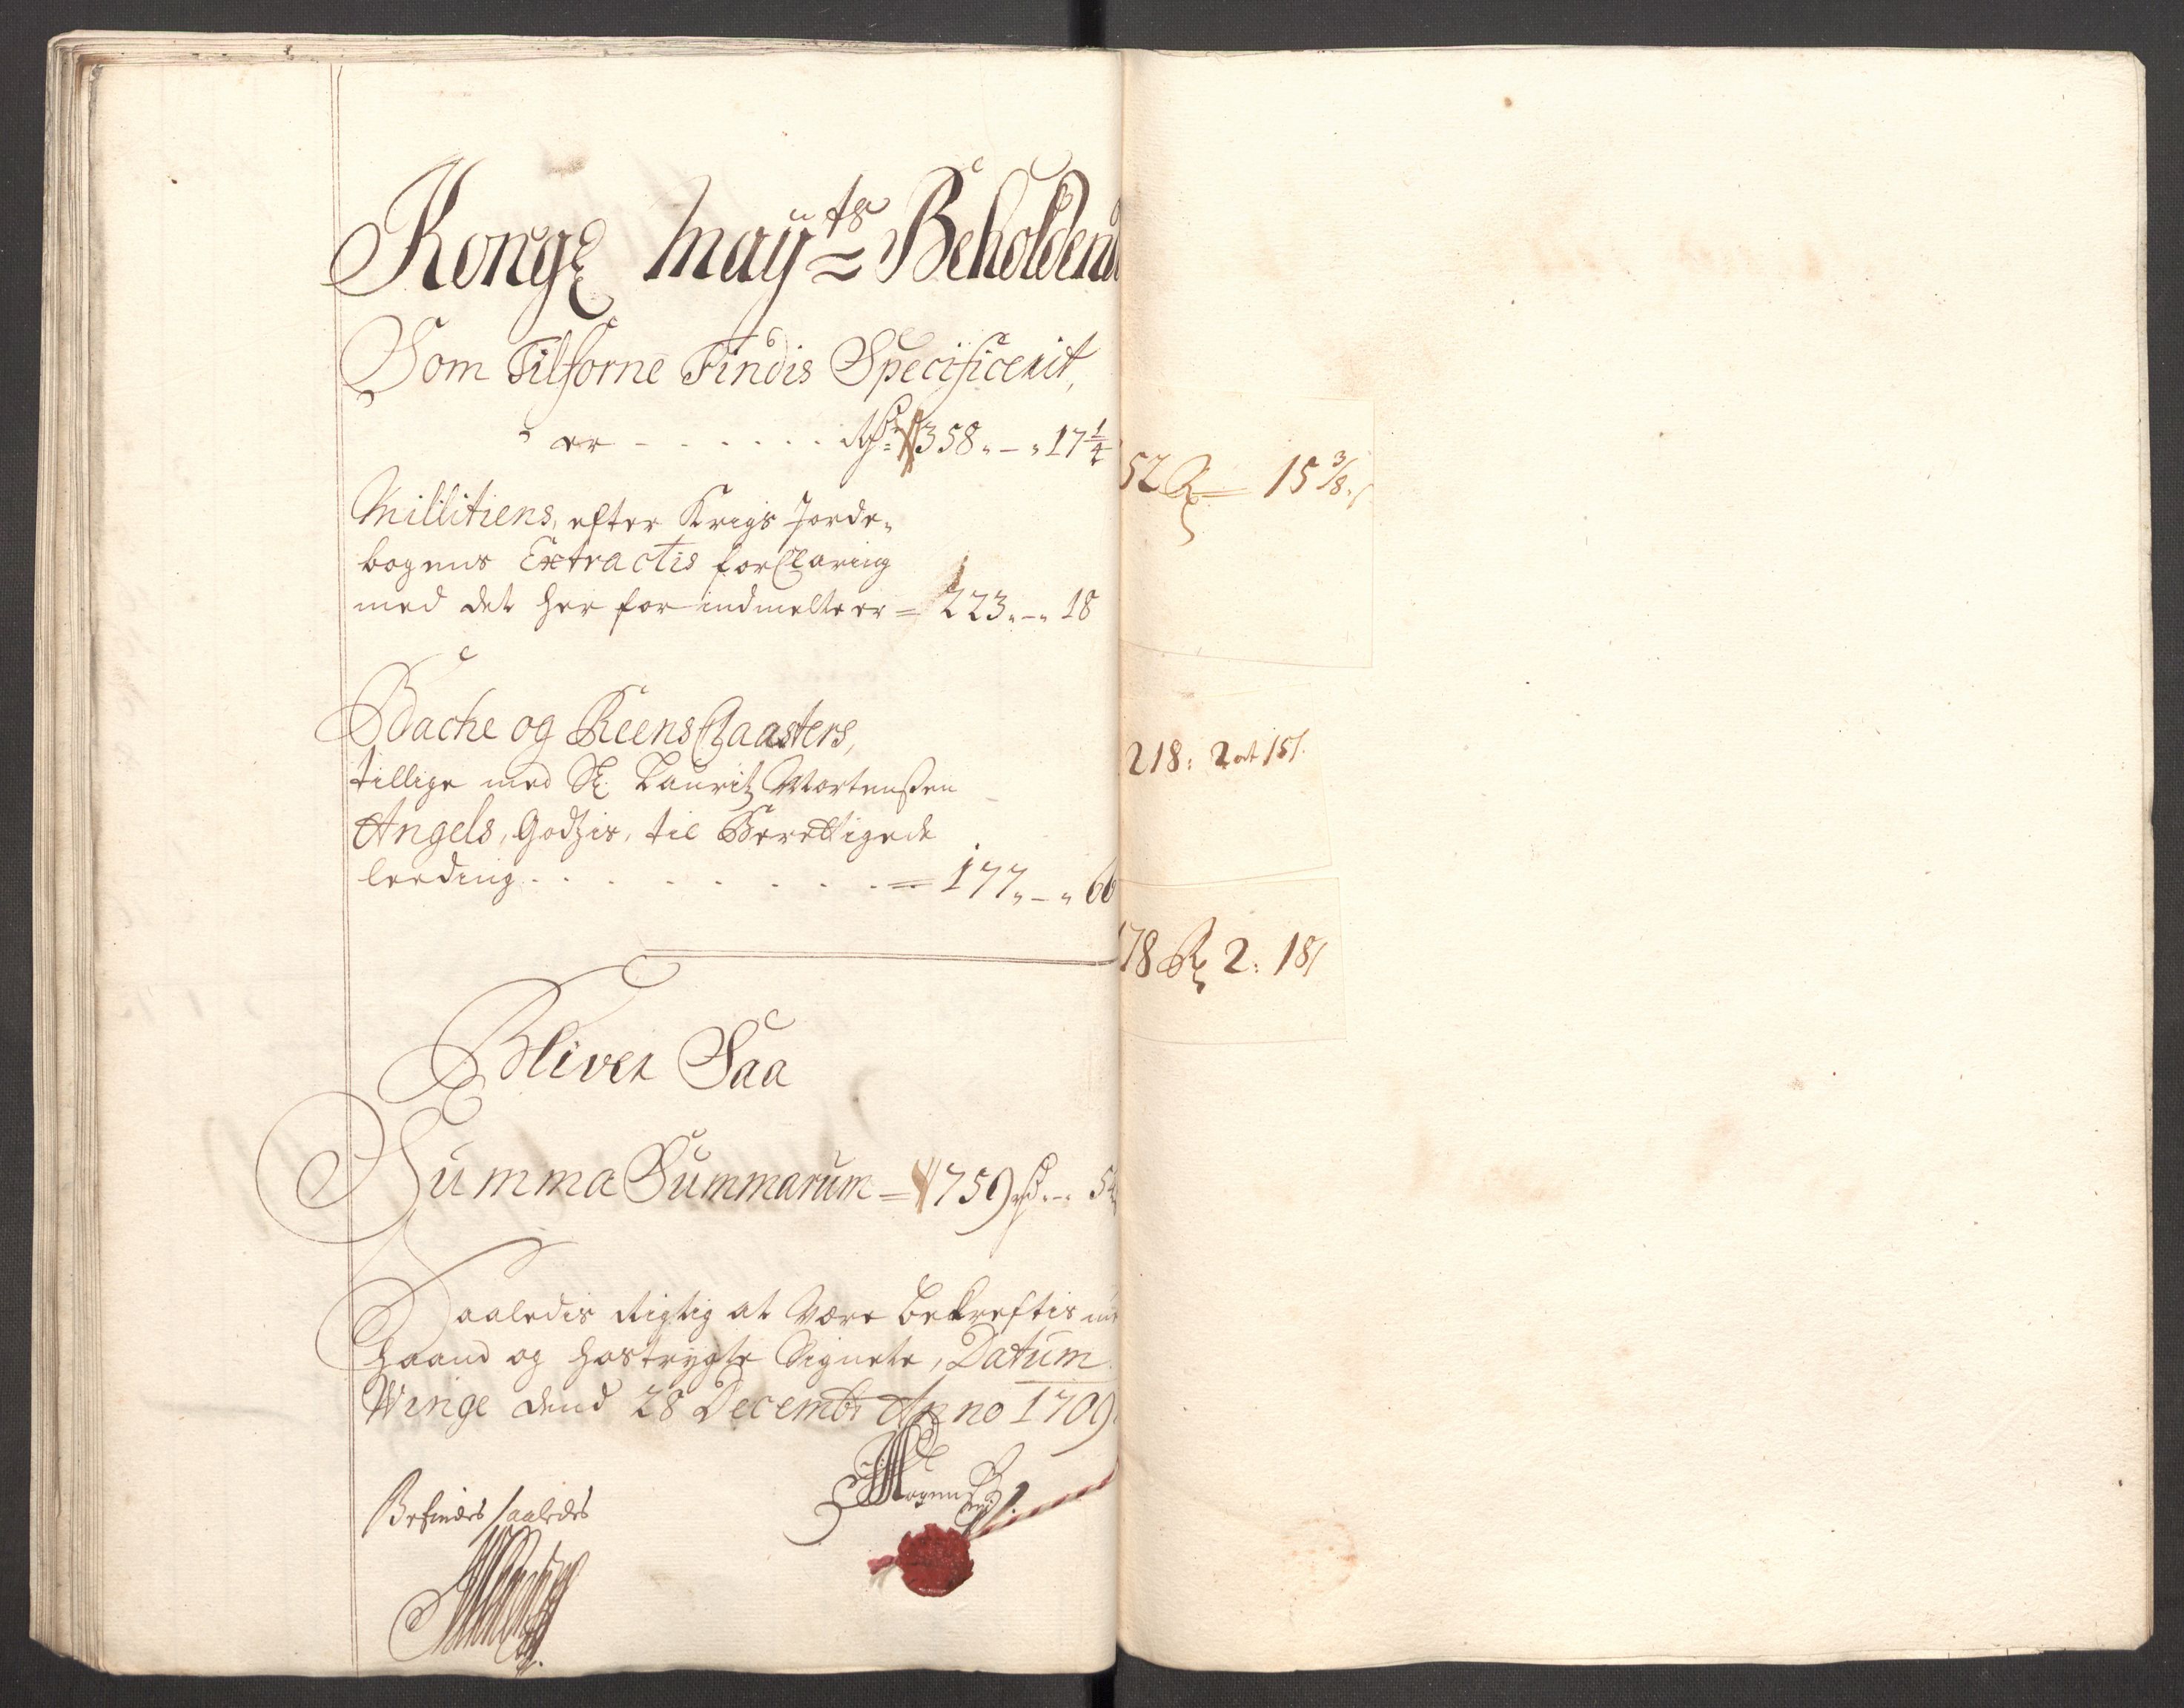 Kongl Mayts Beholdend
Som Tilforne Findis Specificerit,
er - - - - - - Rdr 358 „ - „ 17 1/4
Millitiens, efter Krigs Jorde-
bogens Extractis forClaring
med det her for indmelte er = 223 „ - „ 18
Bache og ReensClaasters,
tillige med Sl. Lauritz Mortensen
Angels, Godzis, til Berettigede
leeding . . . . . . . . = 177 „ - „ 66
Bliver Saa
Summa Summarum = 759 rd - 5
Saaledis Rigtig at Være bekreftis
Haand og hostrygte Signete, Datum
Winge dend 28 Decembr Anno 1709
Mogens
Befindes saaledes
52 R 15 3/8
218: 2 ort 15 s.
178 R 2: 18 s